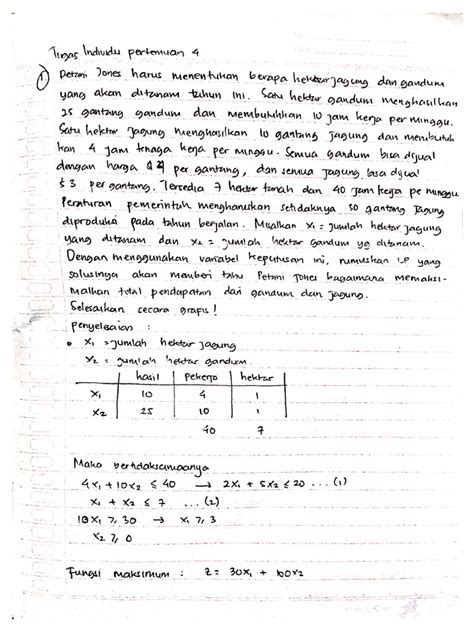 Tugas Individu pertemuan 4
① Petani Jones harus menentukan berapa hektar jagung dan gandum
yang akan ditanam tahun ini. Satu hektar gandum menghasilkan
25 gantang gandum dan membutuhkan 10 jam kerja per minggu.
Satu hektar jagung menghasilkan 10 gantang jagung dan membutuh
kan 4 jam tenaga kerja per minggu. Semua gandum bisa dijual
dengan harga $ 4 per gantang, dan semua jagung bisa dijual
$ 3 per gantang. Tersedia 7 hektar tanah dan 40 jam kerja pe minggu
Peraturan pemerintah mengharuskan setidaknya 30 gantang jagung
diproduksi pada tahun berjalan. Misalkan x₁ = jumlah hektar jagung
yang ditanam dan x₂ = jumlah hektar gandum yg ditanam.
Dengan menggunakan variabel keputusan ini, rumuskan LP yang
solusinya akan memberi tahu Petani Jones bagaimana memaksi-
malkan total pendapatan dari gandum dan jagung.
Selesaikan secara grafis!
penyelesaian :
• x₁ = jumlah hektar jagung
x₂ = jumlah hektar gandum.
hasil | pekerja | hektar
x₁ 10 4 1
x₂ 25 10 1
40 7
Maka pertidaksamaanya
4x₁ + 10x₂ ≤ 40 → 2x₁ + 5x₂ ≤ 20 ... (1)
x₁ + x₂ ≤ 7 ... (2)
10x₁ ≥ 30 → x₁ ≥ 3
x₂ ≥ 0
Fungsi maksimum : z = 30x₁ + 100x₂